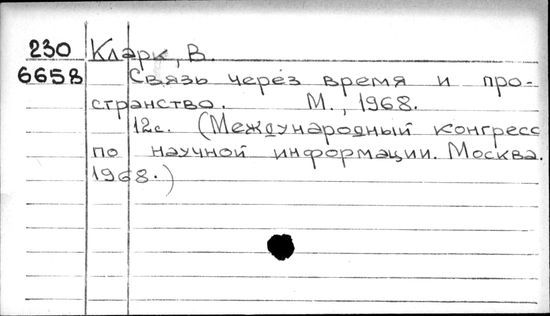 230 Кларк, В.
6658 Связь через время и про-
странство. М., 1968.
12с. (Международный конгресс
по научной информации. Москва.
1968.)